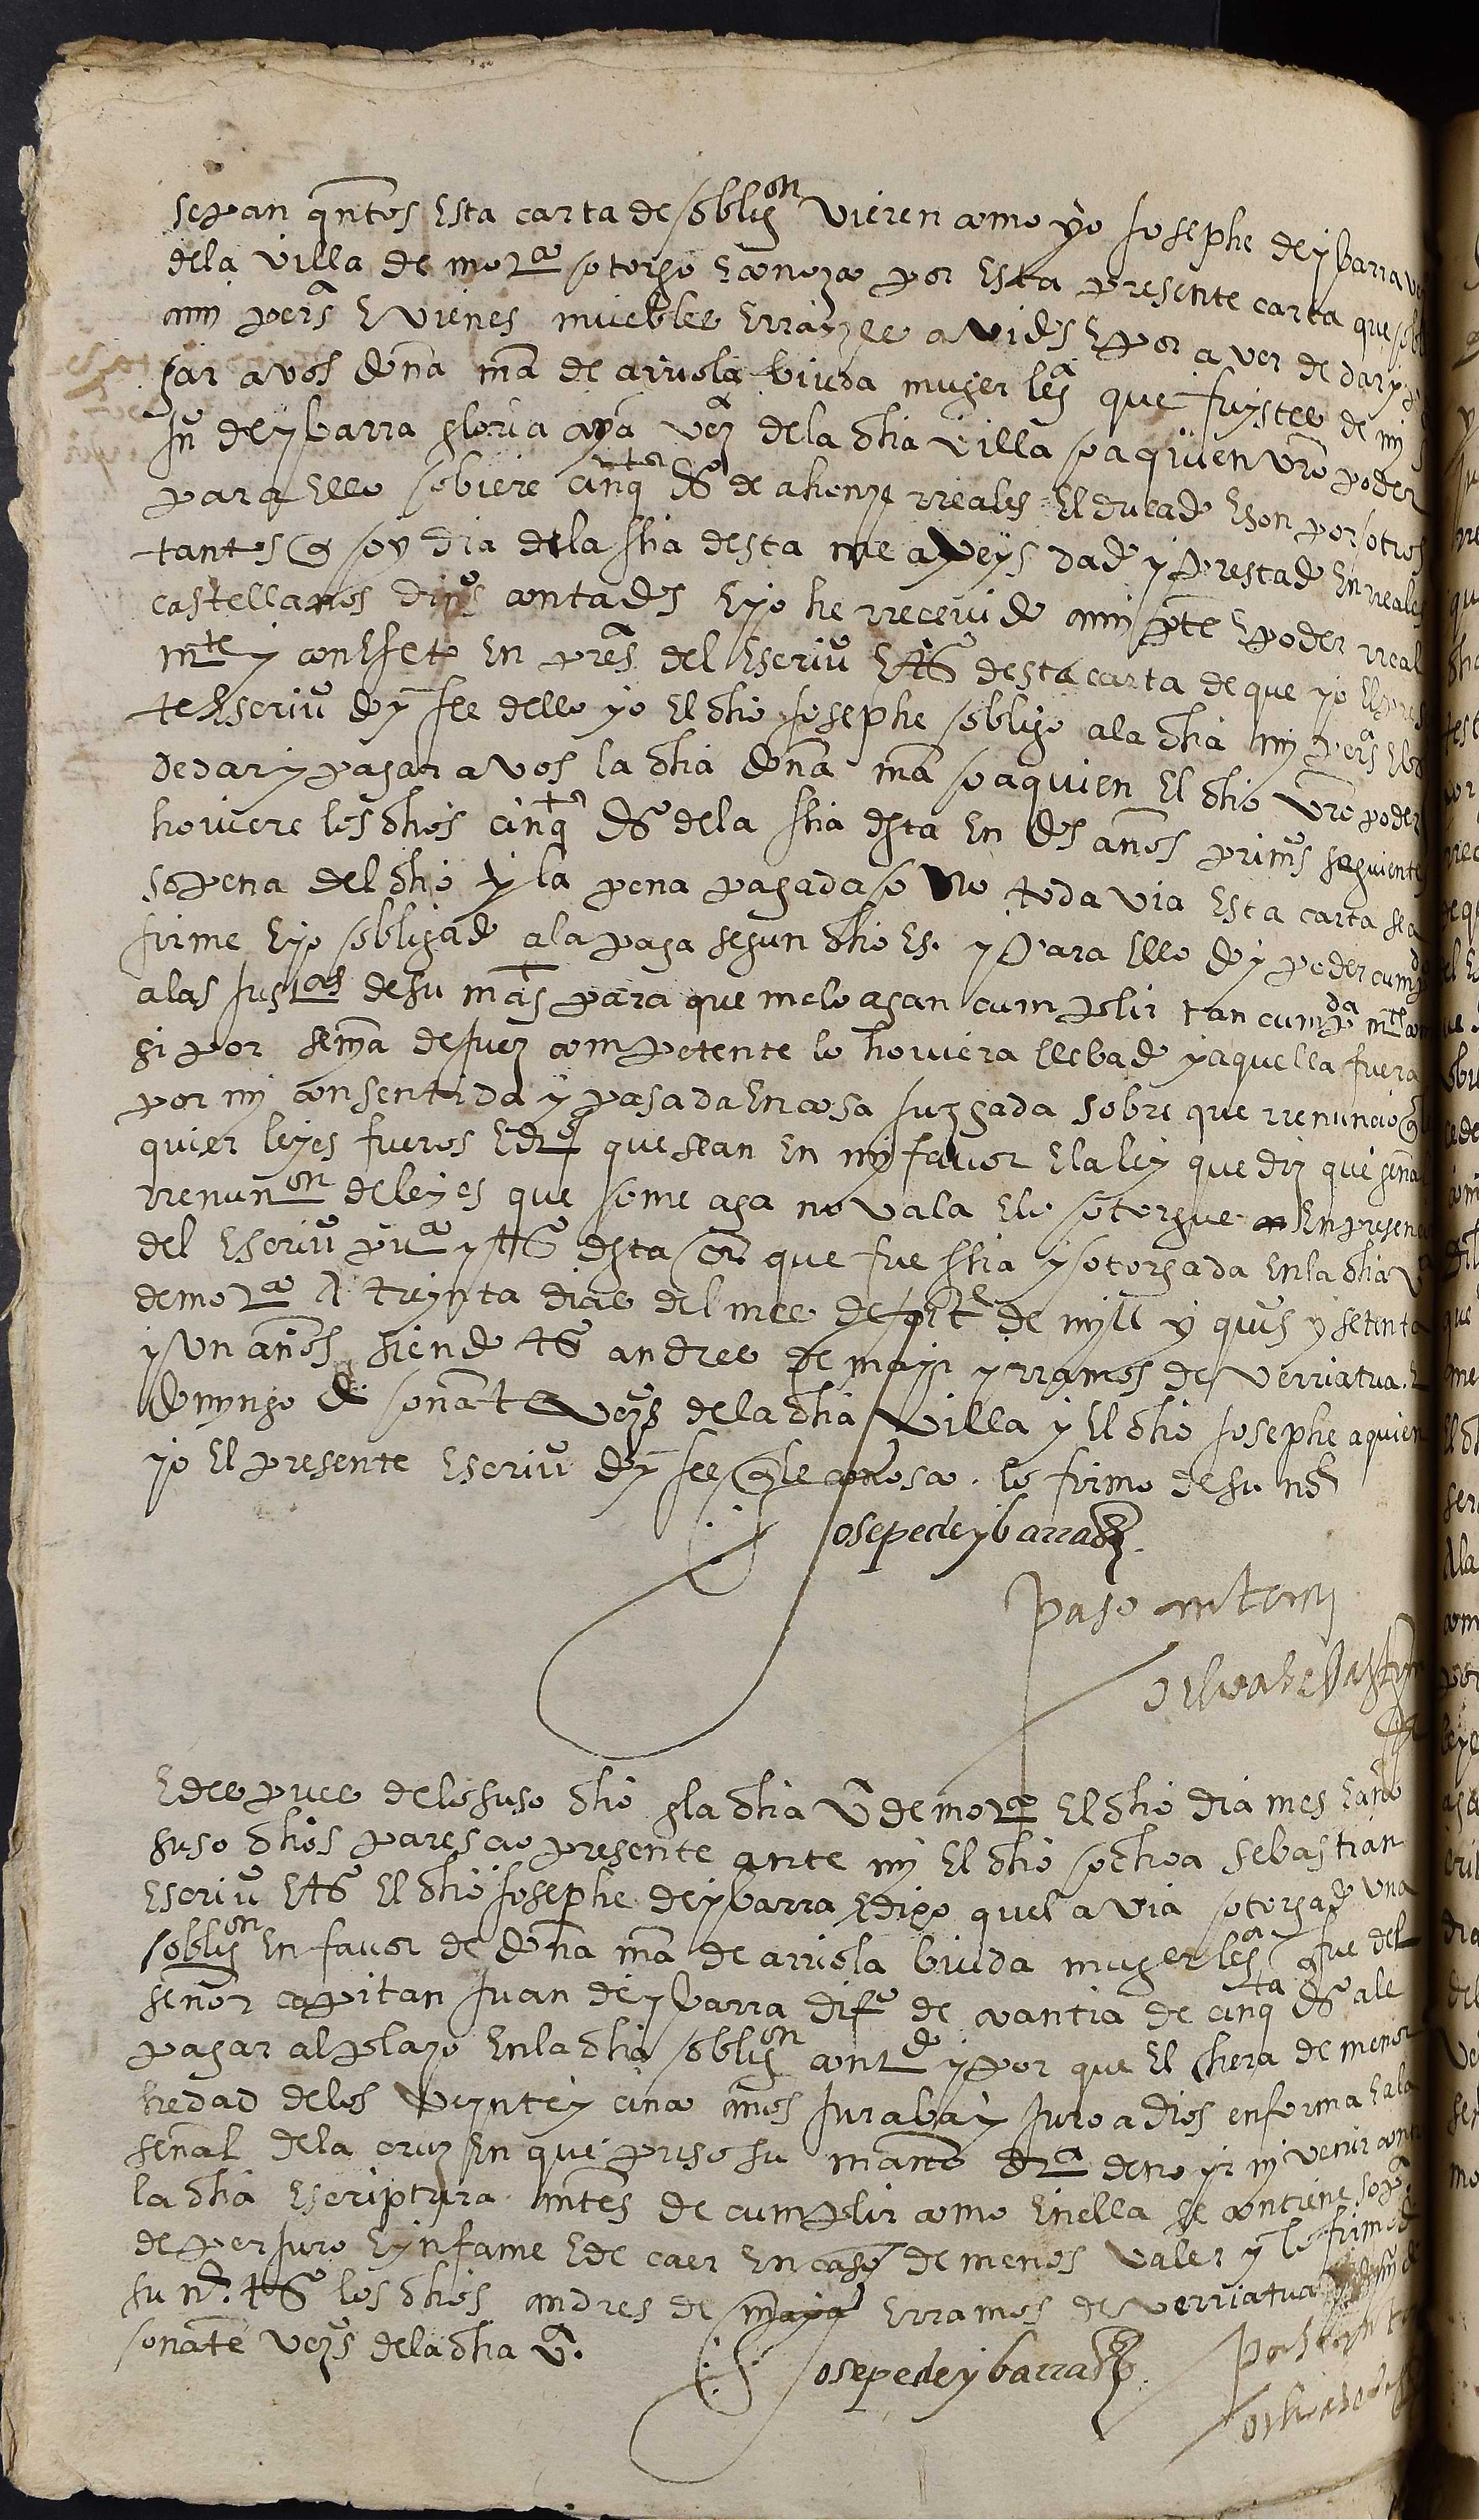 sepan qntos Esta carta de obligon vieren como yo Josephe de ybarra vº
dela villa de motrco otorgo E conozco por Esta presente carta que obl
mi persa E vienes muebles Errayzes avidos E por aver de dar y pa
gar a vos doña ma de arriola biuda muger lega que fuystes de mi
Juº de ybarra gloria aya veza dela dha villa o a quien vro poder
para Ello obiere cinqta dos de a honze rreales El ducado E son por otros
tantos q oy dia dela fha desta me aveys dado y prestado En rreales
castellanos dinos contados E yo he rrecevido a mi pte E poder rreal
mte y con Efeto En presa del Escrivº E tsº desta carta de que yo El pres
te Escrivº doy fee dello yo El dho Josephe obligo ala dha mi persa E bi
de dar y pagar a vos la dha doña ma o a quien El dho vro poder
hoviere los dhos cinqta dos dela fha desta En dos años primos seguientes
so pena del dho y la pena pagada o no toda via Esta carta sea
firme E yo obligado ala paga segun dho Es. y para Ello doy poder cumpdo
alas Justas de su mags para que melo agan cumplir tan cumpda mte com
si por sema de Juez competente lo hoviera llebado y aquella fuera
por mi consentida y pasada En cosa Juzgada sobre que rrenuncio qual
quier leyes fueros E dros que sean En mi favor E la ley que diz que general
rrenunon de leyes que ome aga no vala E lo otorgue En presenca
del Escrivº puco y tsº desta cta que fue fha y otorgada En la dha va
de motrco A treynta dias del mes de de myll y quiºs y setenta
y un años siendo tsº andres de maya y rramos de verriatua E
domyngo de onate vezos dela dha villa y El dho Josephe a quien
yo El presente Escrivº doy fee q le conosco. lo firmo de su nº
Josepe de ybarra
Paso ante mi
ochoa de Sebastian
E despues delo suso dho En la dha va de motrco El dho dia mes E año
suso dhos paresco presente ante mi El dho ochoa sebastian
Escrivº E tsº El dho Josephe de ybarra E dixo quel avia otorgado una
obligon En favor de doña ma de arriola biuda muger lega q fue del
señor capitan Juan de ybarra difº de cantia de cinqta dos a le
pagar al plazo En la dha obligon contdo y por que El hera de menor
hedad delos veynte y cinco años Juraba y Juro a dios en forma E ala
señal dela cruz En que puso su mano dra de no yr ni venir contra
la dha Escriptura antes de cumplir como En ella se contiene so pa
de perJuro E ynfame E de caer En caso de menos valer y lo firmo de
su nº. tsº los dhos andres de maya E rramos de verriatua
onate vezos dela dha va.
Josepe de ybarra
Paso ante mi
ochoa de